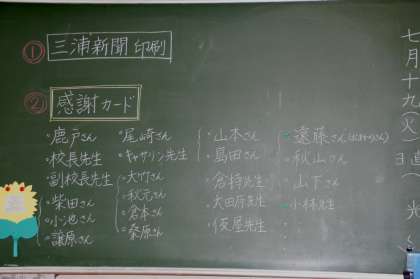 ① 三浦新聞 印刷
② 感謝カード
・鹿戸さん
・校長先生
副校長先生
・柴田さん
・小池さん
・譲原さん
・尾崎さん
・キャサリン先生
・大竹さん
・秋元さん
・倉本さん
・桑原さん
・山本さん
・島田さん
・倉持先生
・大田所先生
・仮屋先生
・遠藤さん
・秋山さん
・山下さん
・小林先生
七月十九(火)
日直
光